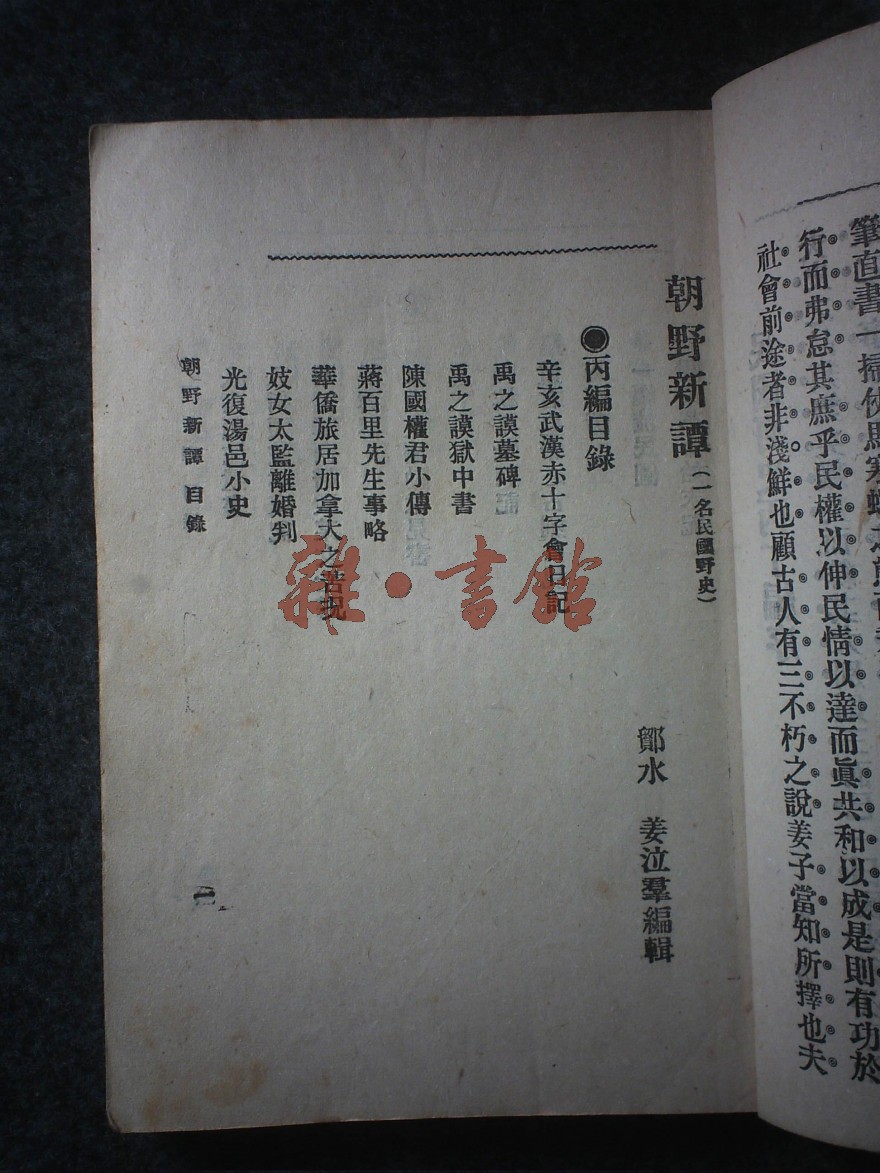 筆直書一掃
行而弗怠其庶乎民權以伸民情以達而眞共和以成是則有功於
社會前途者非淺鮮也顧古人有三不朽之說姜子當知所擇也夫
朝野新譚(一名民國野史)
鄮水 姜泣羣編輯
◉丙編目錄
辛亥武漢赤十字會日記
禹之謨墓碑
禹之謨獄中書
陳國權君小傳
蔣百里先生事略
華僑旅居加拿大之苦況
妓女太監離婚判
光復湯邑小史
朝野新譚 目錄
一
雜·書館